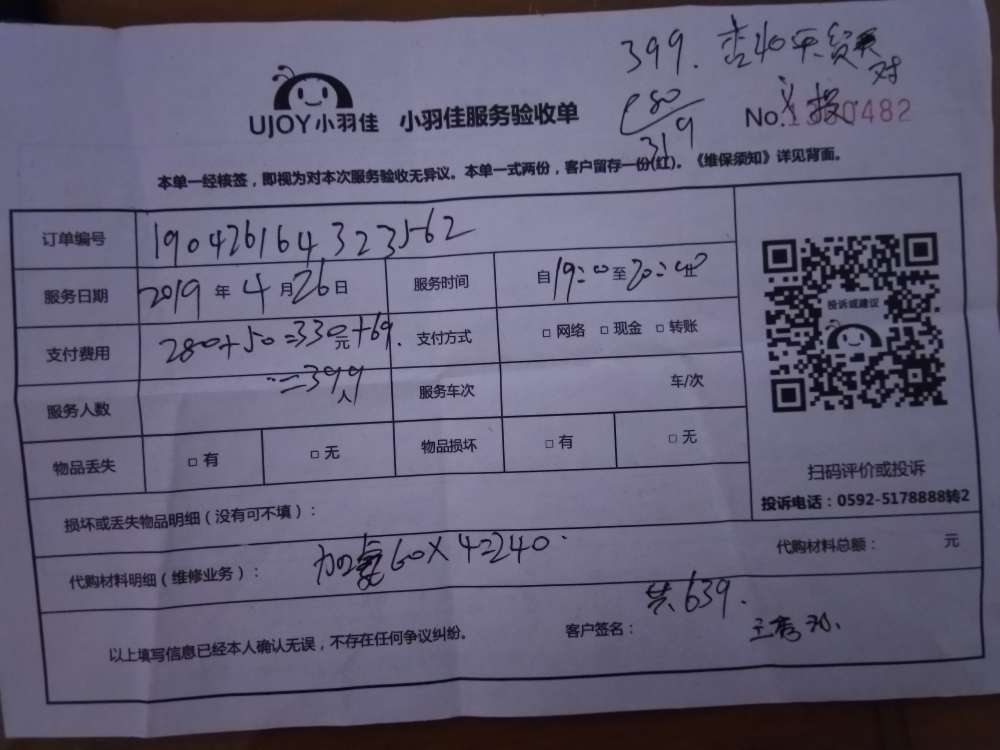 399.
80
319
UJOY小羽佳 小羽佳服务验收单
No. 482
本单一经核签，即视为对本次服务验收无异议。本单一式两份，客户留存一份(红)。《维保须知》详见背面。
订单编号 19042616432
服务日期 2019年4月26日 服务时间 自19:00至20:00止
支付费用 280+50=330元+69. 支付方式 □ 网络 □ 现金 □ 转账
=399
服务人数 人 服务车次 车/次
物品丢失 □ 有 □ 无 物品损坏 □ 有 □ 无
投诉或建议
扫码评价或投诉
投诉电话：0592-5178888转2
损坏或丢失物品明细（没有可不填）：
代购材料明细（维修业务）： 加氟60×4=240. 代购材料总额： 元
共639.
以上填写信息已经本人确认无误，不存在任何争议纠纷。 客户签名：